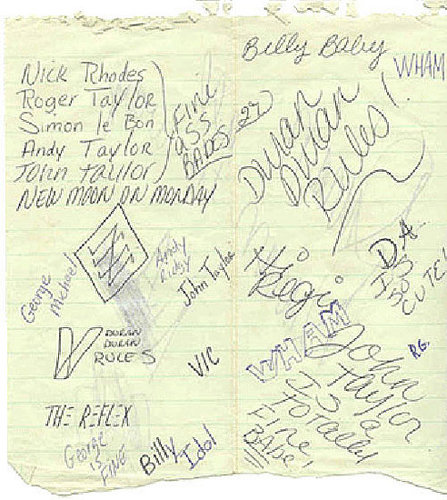 Nick Rhodes
Roger Taylor
Simon le Bon
Andy Taylor
John Taylor
FINE
ASS
BABES
NEW MOON ON MONDAY
George
Michael
Andy
John Taylor
DURAN
DURAN
RULES
VIC
THE REFLEX
George
IS
FINE
Billy Idol
Billy Baby
WHAM
Duran
Duran
Rules!
Hi
Regi
D.A.
IS
SO
CUTE!
WHAM
R.G.
John
Taylor
IS a
TOTALLY
FINE
BABE!